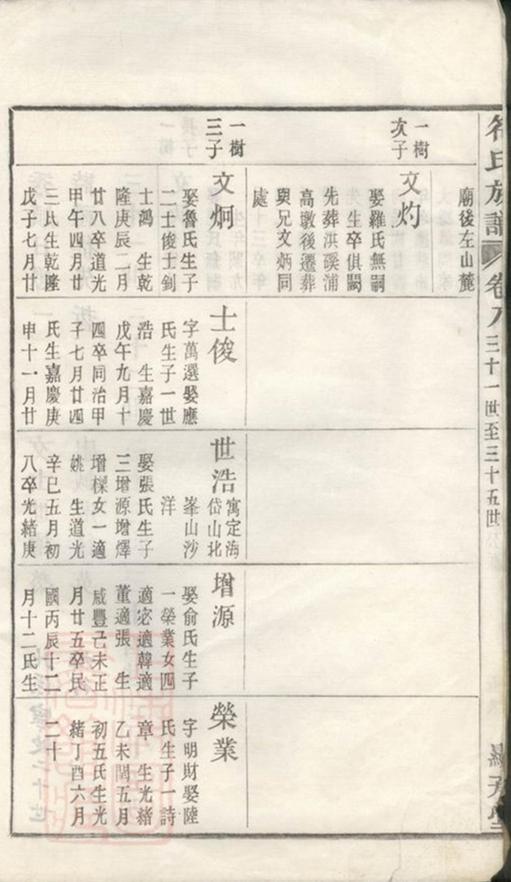 族譜
卷八
三十一世至三十五世
廟後左山麓
一樹
次子
文灼
娶羅氏無嗣
生卒俱闕
先葬洪礖浦
高墩後遷葬
與兄文炳同
處
一樹
三子
文炯
娶魯氏生子
二士俊士釗
士鴻 生乾
隆庚辰二月
廿八卒道光
甲午四月廿
三氏生乾隆
戊子七月廿
士俊
字萬選娶應
氏生子一世
浩 生嘉慶
戊午九月十
四卒同治甲
子七月廿四
氏生嘉慶庚
申十一月廿
世浩
寓定海
岱山北
峯山沙
洋
娶張氏生子
三增源增燡
增樑女一適
姚 生道光
辛巳五月初
八卒光緒庚
增源
娶俞氏生子
一榮業女四
適宓適韓適
董適張 生
咸豐己未正
月廿五卒民
國丙辰十二
月十二氏生
榮業
字明財娶陸
氏生子一詩
章 生光緒
乙未閏五月
初五氏生光
緒丁酉六月
二十